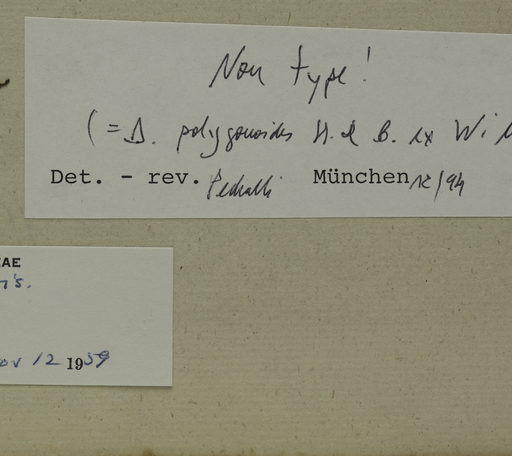 Non type!
(= D. polygonoides H. & B. ex Wil
Det. - rev. Pedralli München 12/94
EAE
n's.
ov 12 1959